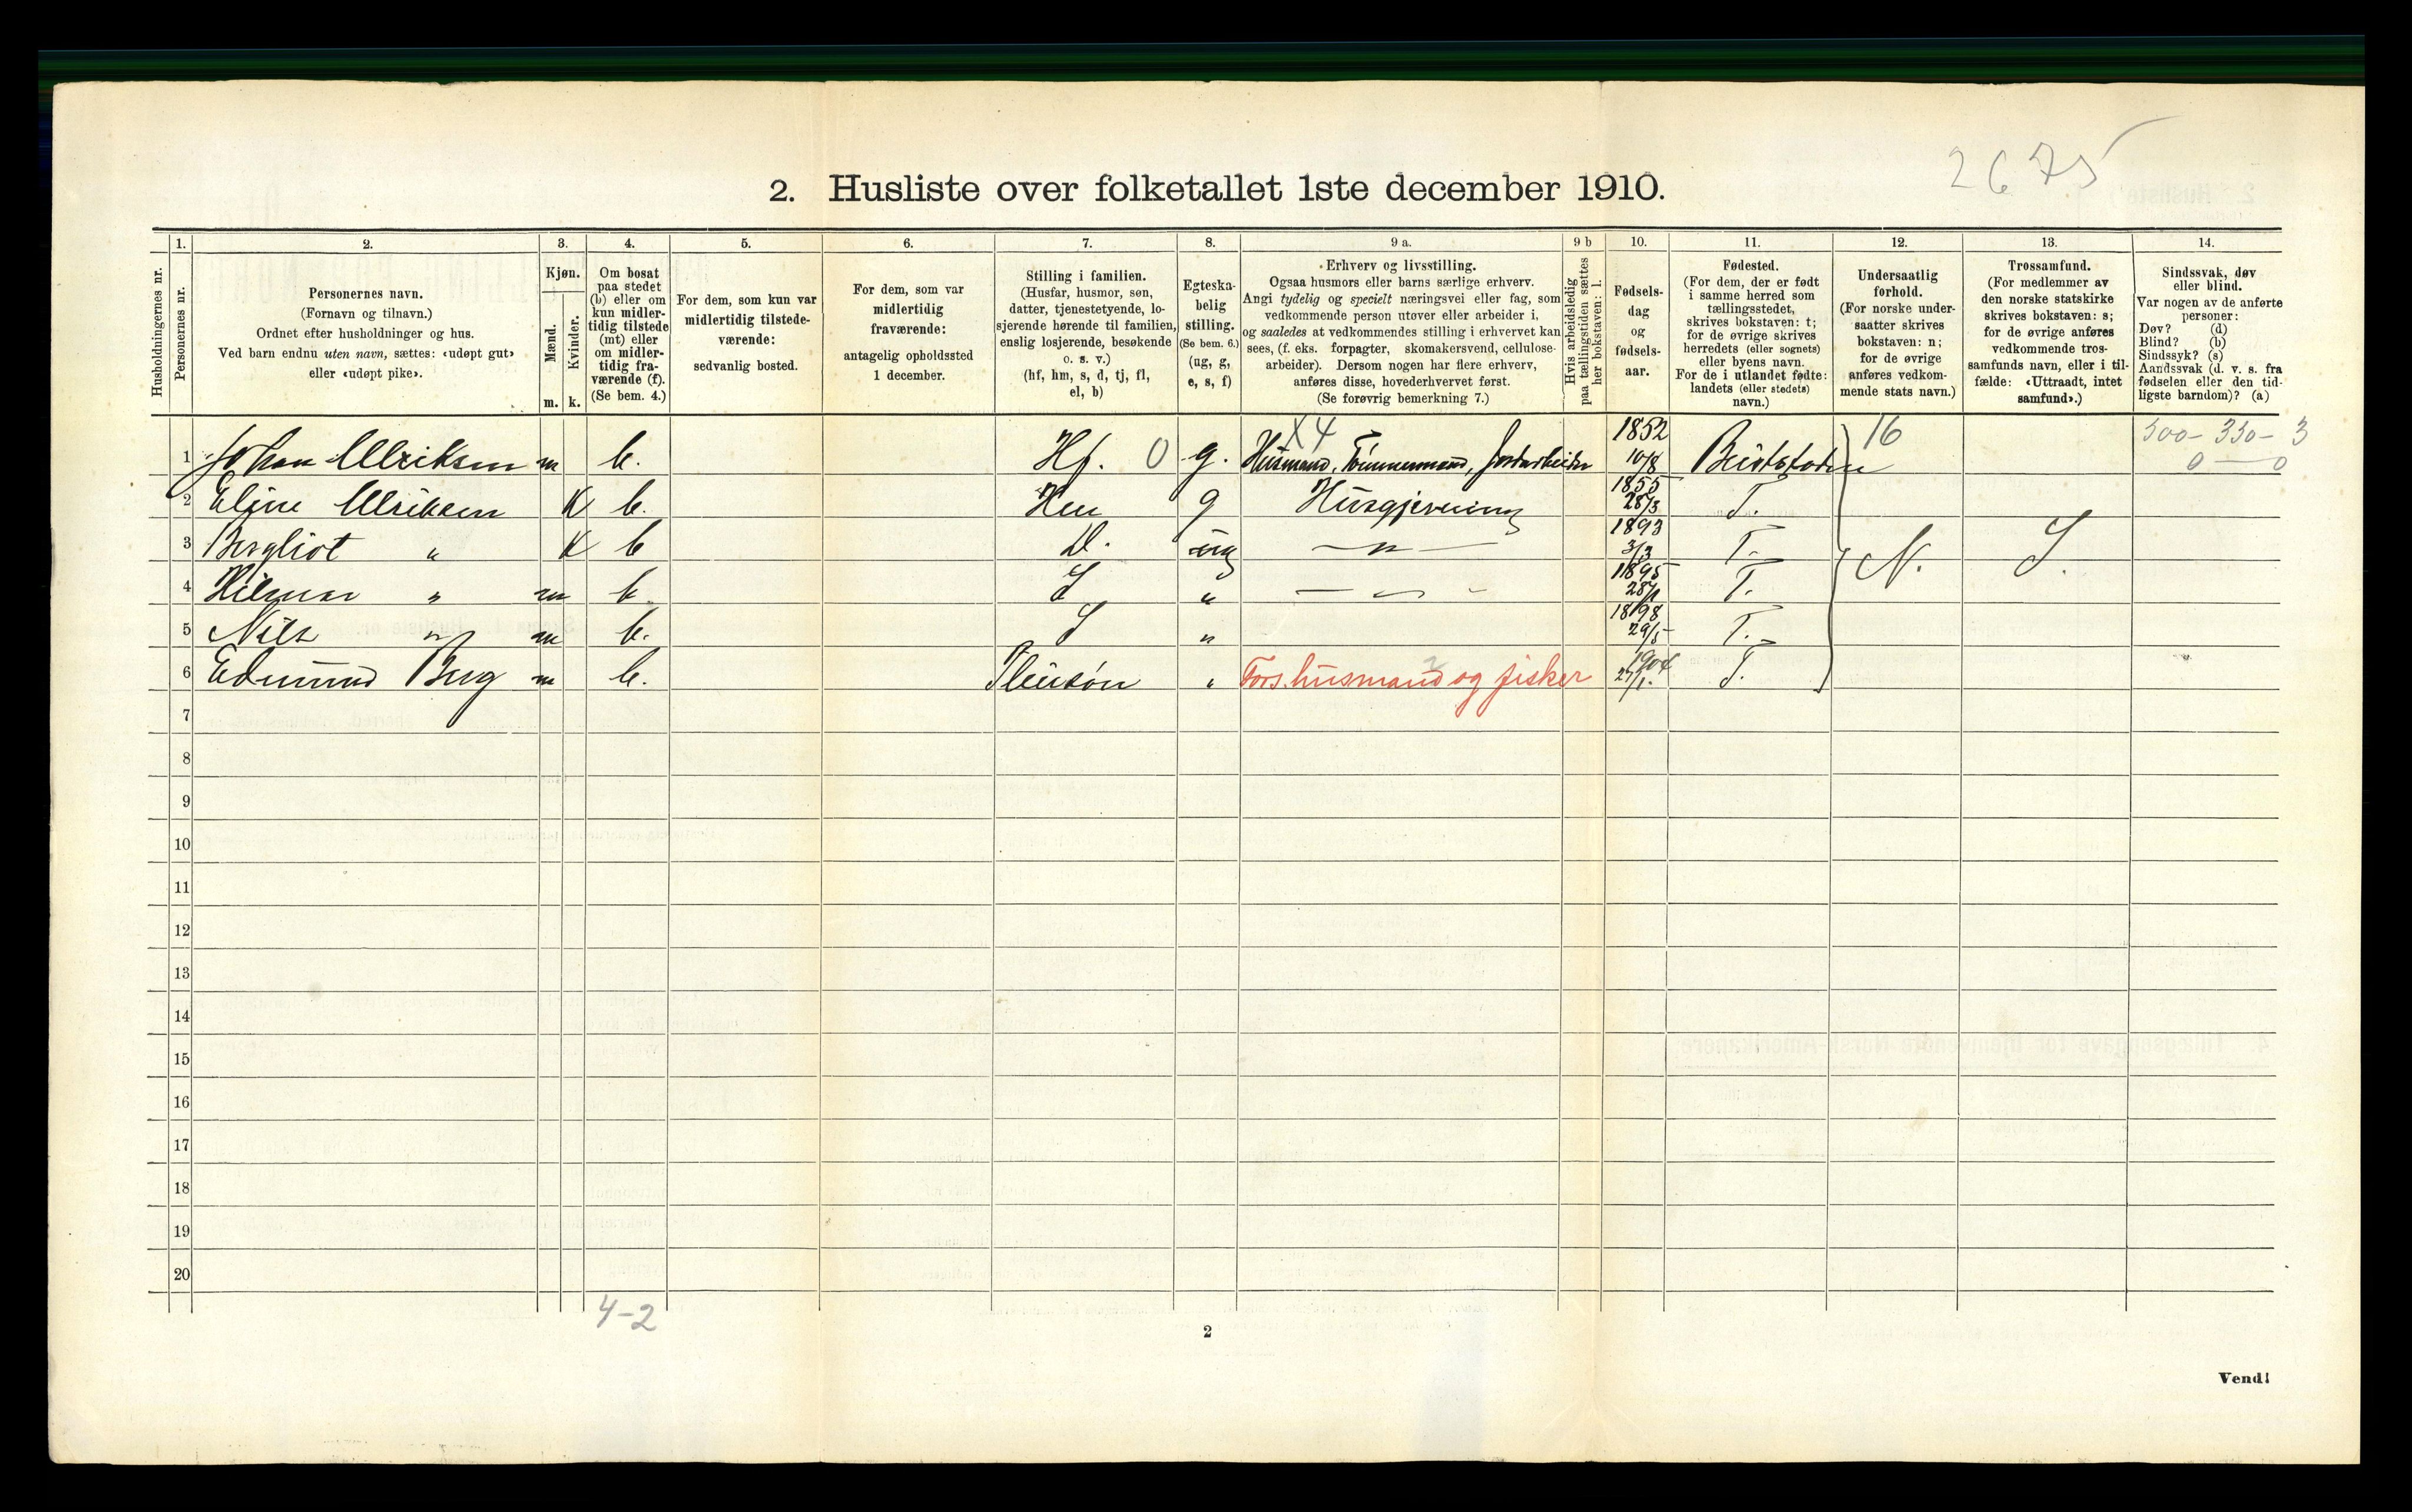 2675
2. Husliste over folketallet 1ste december 1910.
1. 2. 3. 4. 5. 6. 7. 8. 9 a. 9 b 10. 11. 12. 13. 14.
Husholdningernes nr.
Personernes nr.
Personernes navn.
(Fornavn og tilnavn.)
Ordnet efter husholdninger og hus.
Ved barn endnu uten navn, sættes: «udøpt gut»
eller «udøpt pike».
Kjøn.
Mænd.
Kvinder.
m. k.
Om bosat
paa stedet
(b) eller om
kun midler-
tidig tilstede
(mt) eller
om midler-
tidig fra-
værende (f).
(Se bem. 4.)
For dem, som kun var
midlertidig tilstede-
værende:
sedvanlig bosted.
For dem, som var
midlertidig
fraværende:
antagelig opholdssted
1 december.
Stilling i familien.
(Husfar, husmor, søn,
datter, tjenestetyende, lo-
sjerende hørende til familien,
enslig losjerende, besøkende
o. s. v.)
(hf, hm, s, d, tj, fl,
el, b)
Egteska-
belig
stilling.
(Se bem. 6.)
(ug, g,
e, s, f)
Erhverv og livsstilling.
Ogsaa husmors eller barns særlige erhverv.
Angi tydelig og specielt næringsvei eller fag, som
vedkommende person utøver eller arbeider i,
og saaledes at vedkommendes stilling i erhvervet kan
sees, (f. eks. forpagter, skomakersvend, cellulose-
arbeider). Dersom nogen har flere erhverv,
anføres disse, hovederhvervet først.
(Se forøvrig bemerkning 7.)
Hvis arbeidsledig
paa tællingstiden sættes
her bokstaven: l.
Fødsels-
dag
og
fødsels-
aar.
Fødested.
(For dem, der er født
i samme herred som
tællingsstedet,
skrives bokstaven: t;
for de øvrige skrives
herredets (eller sognets)
eller byens navn.
For de i utlandet fødte:
landets (eller stedets)
navn.)
Undersaatlig
forhold.
(For norske under-
saatter skrives
bokstaven: n;
for de øvrige
anføres vedkom-
mende stats navn.)
Trossamfund.
(For medlemmer av
den norske statskirke
skrives bokstaven: s;
for de øvrige anføres
vedkommende tros-
samfunds navn, eller i til-
fælde: «Uttraadt, intet
samfund».)
Sindssvak, døv
eller blind.
Var nogen av de anførte
personer:
Døv? (d)
Blind? (b)
Sindssyk? (s)
Aandssvak (d. v. s. fra
fødselen eller den tid-
ligste barndom)? (a)
X4 1852 16 300- 330- 3
1 Johan Ulriksen m b. Hf. 0 g. Husmand, Tømmermand, Jordarbeider 10/8 0 — 0
2 Eline Ulriksen K b. Hm g Husgjerning 1855 28/3 T.
3 Bergliot " K b D. ug — " — 1893 3/3 T. N. S.
4 Hilmar " m b S " 1895 T.
5 Nils " m b. S " 1898 29/5 T.
6 Edmund Berg m b. Pleiesøn " Fors. husmand og fisker 1904 27/1. T.
7
8
9
10
11
12
13
14
15
16
17
18
19
20
4-2
2
Vend!